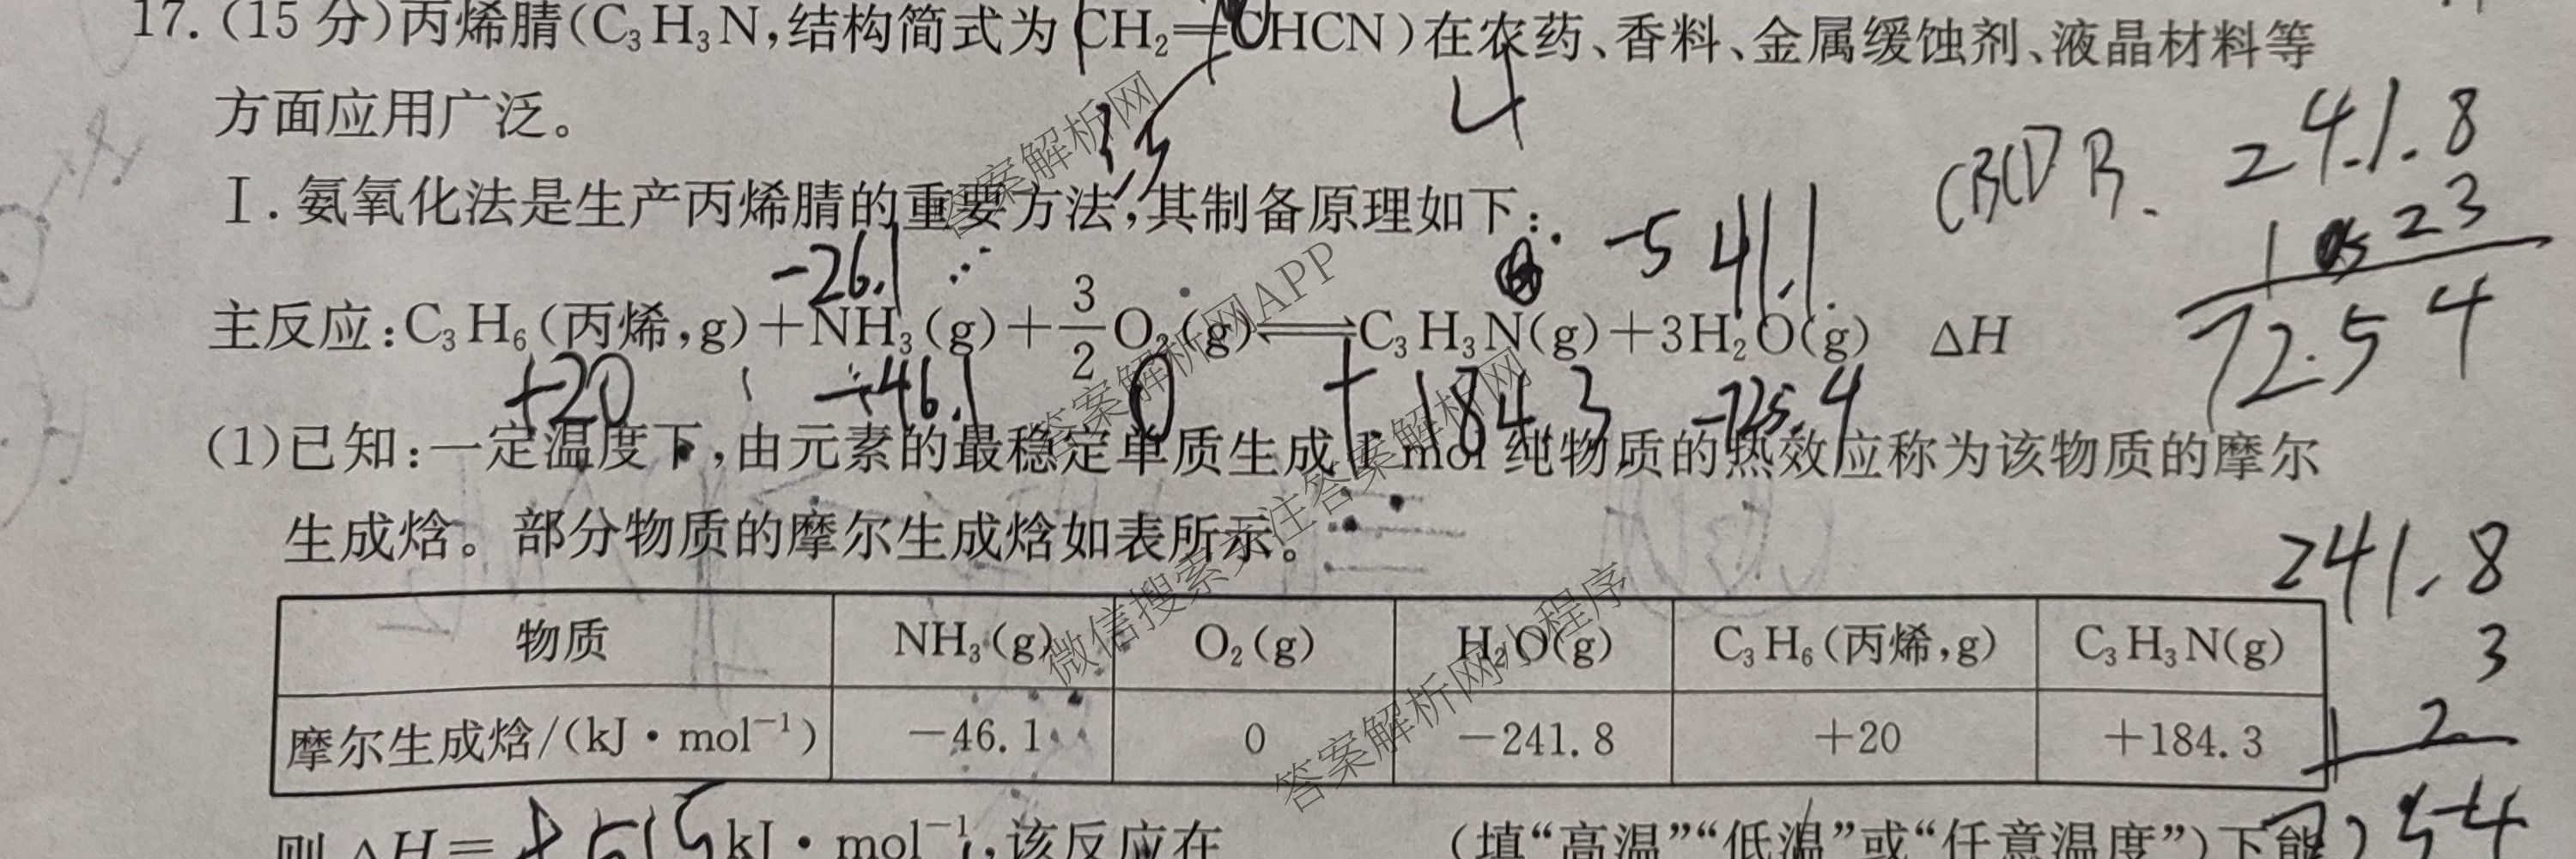 17.(15分)丙烯腈(C₃H₃N,结构简式为CH₂=CHCN)在农药、香料、金属缓蚀剂、液晶材料等
方面应用广泛。
4
241.8
Ⅰ.氨氧化法是生产丙烯腈的重要方法,其制备原理如下:
-26.1
-541.1
主反应:C₃H₆(丙烯,g)+NH₃(g)+3/2O₂(g)⇌C₃H₃N(g)+3H₂O(g) ΔH
725.4
+20 -46.1 0 +184.3 -725.4
(1)已知:一定温度下,由元素的最稳定单质生成1 mol纯物质的热效应称为该物质的摩尔
生成焓。部分物质的摩尔生成焓如表所示。
241.8
3
2
物质 NH₃(g) O₂(g) H₂O(g) C₃H₆(丙烯,g) C₃H₃N(g)
摩尔生成焓/(kJ·mol⁻¹) -46.1 0 -241.8 +20 +184.3
7254
则ΔH= kJ·mol⁻¹,该反应在 (填“高温”“低温”或“任意温度”)下能
答案解析网
答案解析网APP
微信搜索关注答案解析网
答案解析网小程序